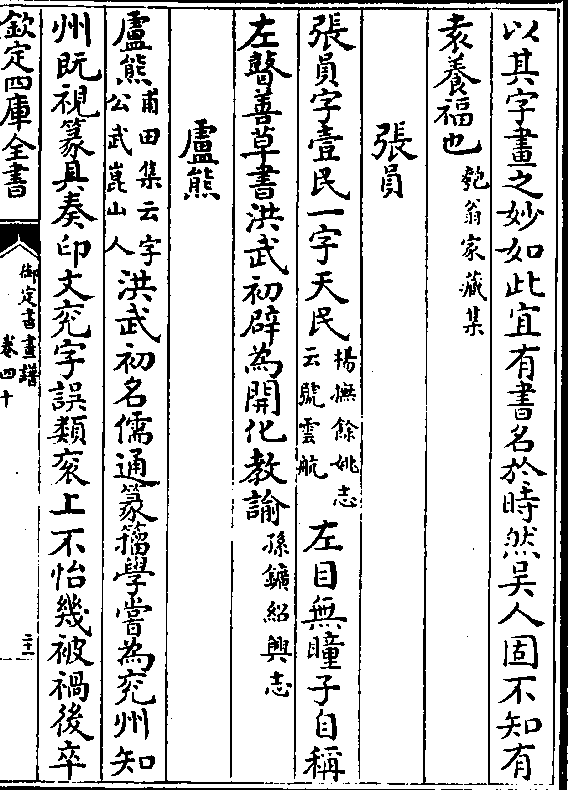 以其字畫之妙如此宜有書名於時然吳人固不知有
袁養福也匏翁家藏集
張員
張員字壹民一字天民楊撫餘姚志云號雲航左目無瞳子自稱
左瞽善草書洪武初辟為開化教諭孫鑛紹興志
盧熊
盧熊甫田集云字公武崑山人洪武初名儒通篆籀學嘗為兖州知
州既視篆具奏印文兖字誤類衮上不怡幾被禍後卒
欽定四庫全書
御定書畫譜
卷四十
二十一